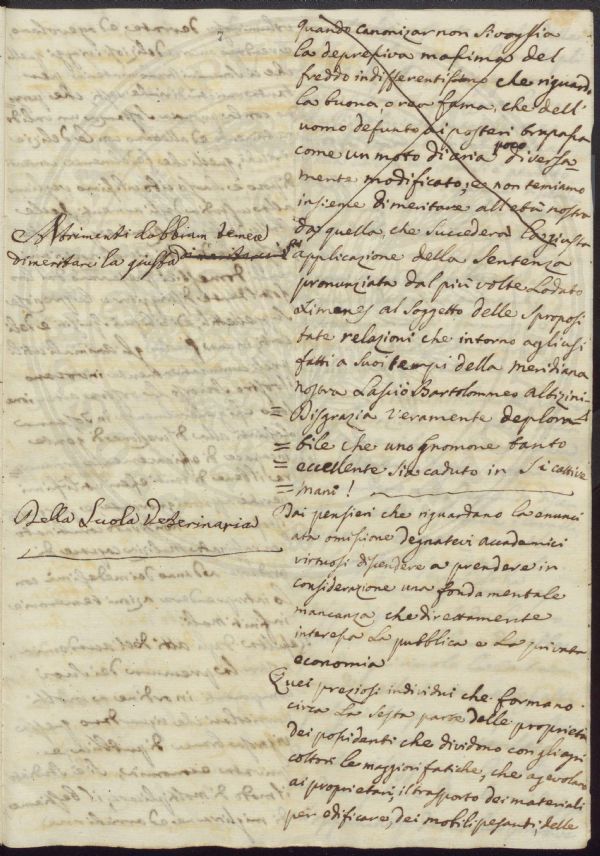 Quando canonizar non si voglia
la depressiva massima del
freddo indifferentissimo che riguarda
la buona, o rea fama, che dell'
uomo defunto ai posteri trapassa
come un moto di aria poco diversa-
mente modificato; e non temiamo
insieme di meritare all'età nostra
da quella, che succederà la giusta
applicazione della Sentenza
pronunziata dal più volte Lodato
Ximenes al Soggetto delle sproposi
tate relazioni che intorno agli usi
fatti a suoi tempi della meridiana
nostra Lasciò Bartolommeo
Disgrazia veramente deplora-
bile che uno gnomone tanto
eccellente sia caduto in Sì cattive
mani!
Altrimenti dobbiam temere
di meritare la giusta
Della Scuola Veterinaria
Dai pensieri che riguardano la enunci
ata omissione degnatevi accademici
virtuosi discendere a prendere in
considerazione una fondamentale
mancanza che direttamente
interessa La pubblica e La privata
economia
Quei preziosi individui che formano
circa La sesta parte delle proprietà
dei possidenti che dividono con gli agri
coltori le maggiori fatiche, che agevolano
ai proprietari, il trasporto dei materiali
per edificare, dei mobili pesanti, delle